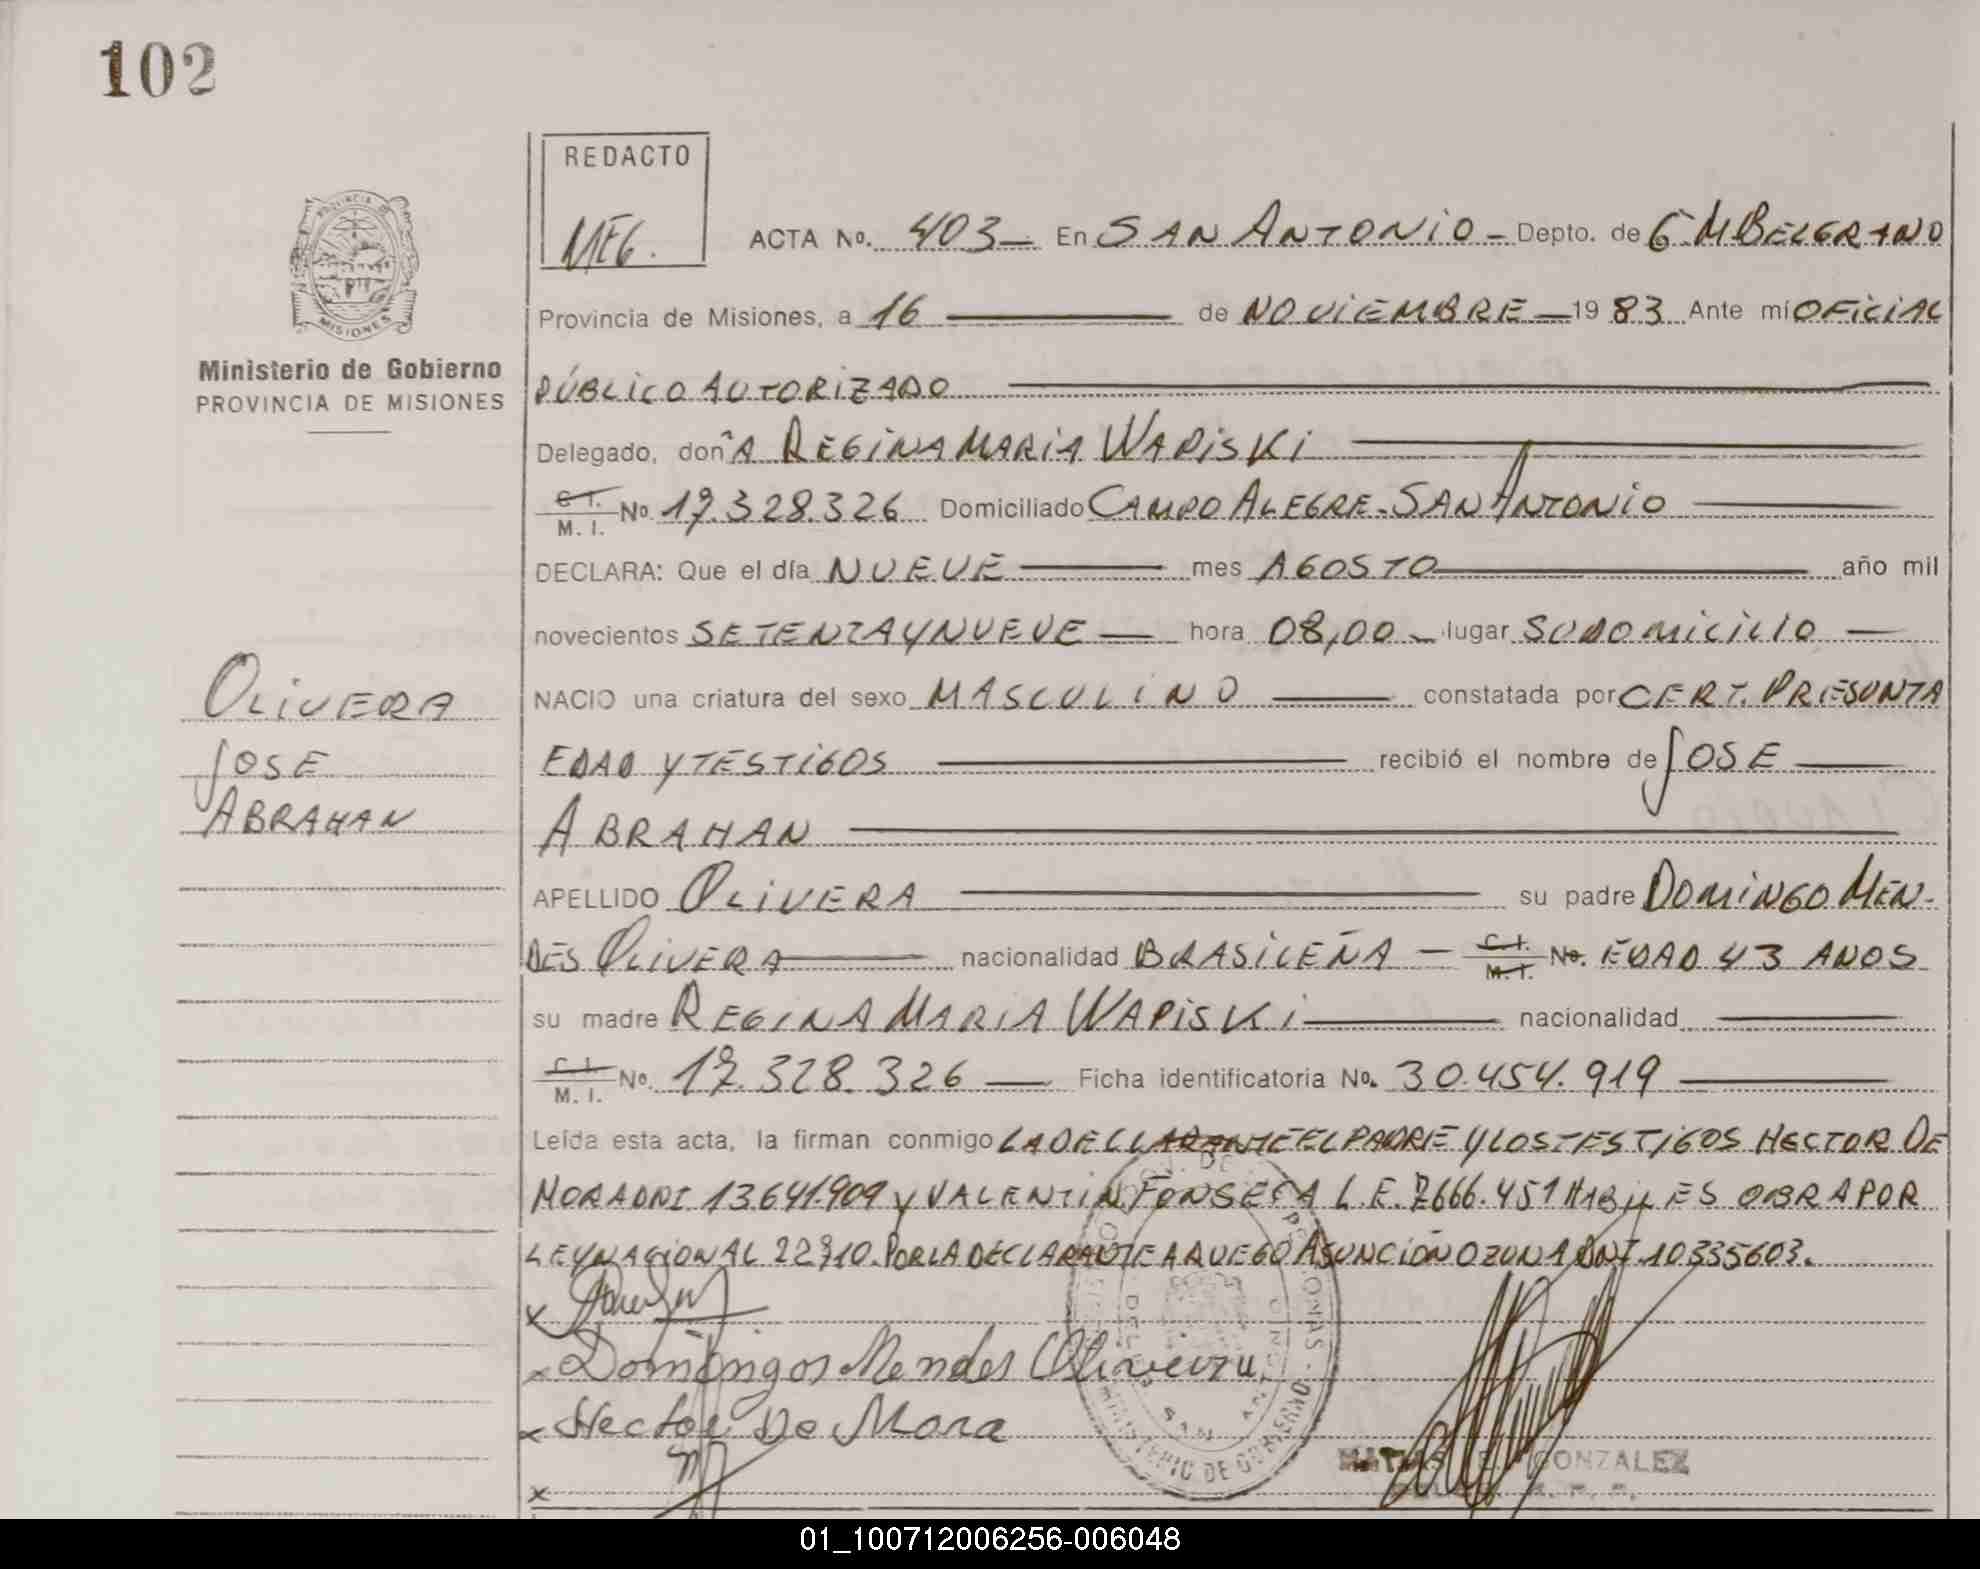 102
REDACTO
MEG.
ACTA No. 403 En SAN ANTONIO - Depto. de G. M BELGRANO
PROVINCIA DE
MISIONES
Ministerio de Gobierno
PROVINCIA DE MISIONES
Provincia de Misiones, a 16 de NOVIEMBRE 1983 Ante mí OFICIAL
PÚBLICO AUTORIZADO
Delegado, doñA REGINA MARIA WAPISKI
C. I. M. I. No. 17.328.326 Domiciliado CAMPO ALEGRE - SAN ANTONIO
DECLARA: Que el día NUEVE mes AGOSTO año mil
novecientos SETENTA Y NUEVE hora 08,00 lugar SU DOMICILIO
NACIO una criatura del sexo MASCULINO constatada por CERT. PRESUNTA
EDAD Y TESTIGOS recibió el nombre de JOSE
ABRAHAN
OLIVERA
JOSE
ABRAHAN
APELLIDO OLIVERA su padre DOMINGO MEN-
DES OLIVERA nacionalidad BRASILEÑA - C. I. M. I. No. EDAD 43 AÑOS
su madre REGINA MARIA WAPISKI nacionalidad
C. I. M. I. No. 17.328.326 Ficha identificatoria No. 30.454.919
Leída esta acta, la firman conmigo LA DECLARANTE EL PADRE Y LOS TESTIGOS HECTOR DE
MORA DNI 13.641.909 y VALENTIN FONSECA L.E. 7.666.451 HABILES OBRA POR
LEY NACIONAL 22.910. POR LA DECLARANTE A RUEGO ASUNCIÓN OZUNA DNI. 10335603.
x
x Domingos Mendes Oliveira
x Hector De Mora
x
MINISTERIO DE GOBIERNO
SAN ANTONIO
MATIAS E. GONZALEZ
01_100712006256-006048